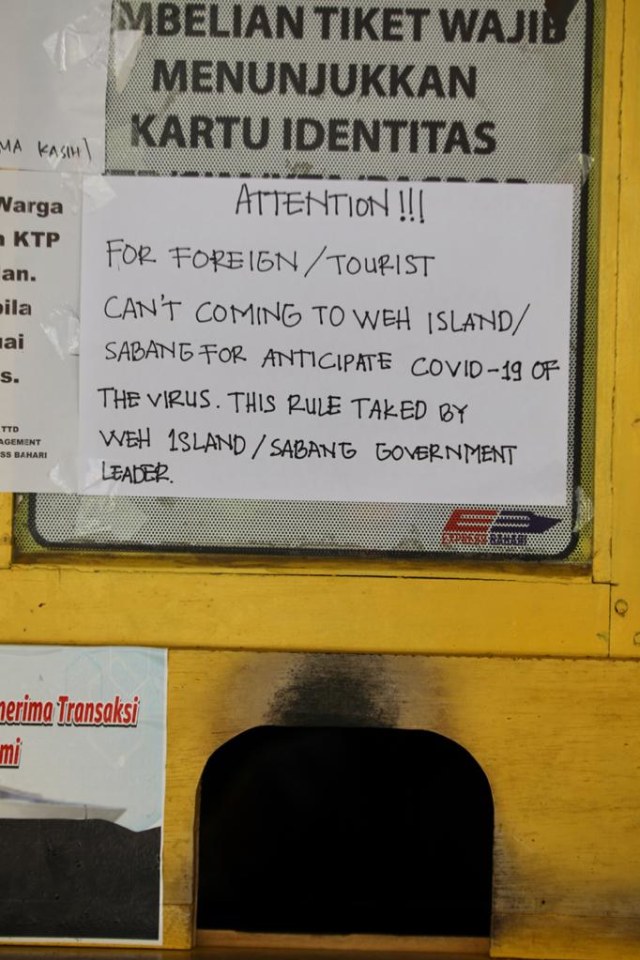 TIKET WAJIB
MENUNJUKKAN
KARTU IDENTITAS
KASIH)
Warga
KTP
ATTENTION!!!
FOR FOREIGN/TOURIST
CAN'T COMING TO WEH ISLAND/
SABANG FOR ANTICIPATE COVID-19 OF
THE VIRUS. THIS RULE TAKED BY
WEH ISLAND/SABANG GOVERNMENT
LEADER.
TTD
EXPRESS BAHARI
Transaksi